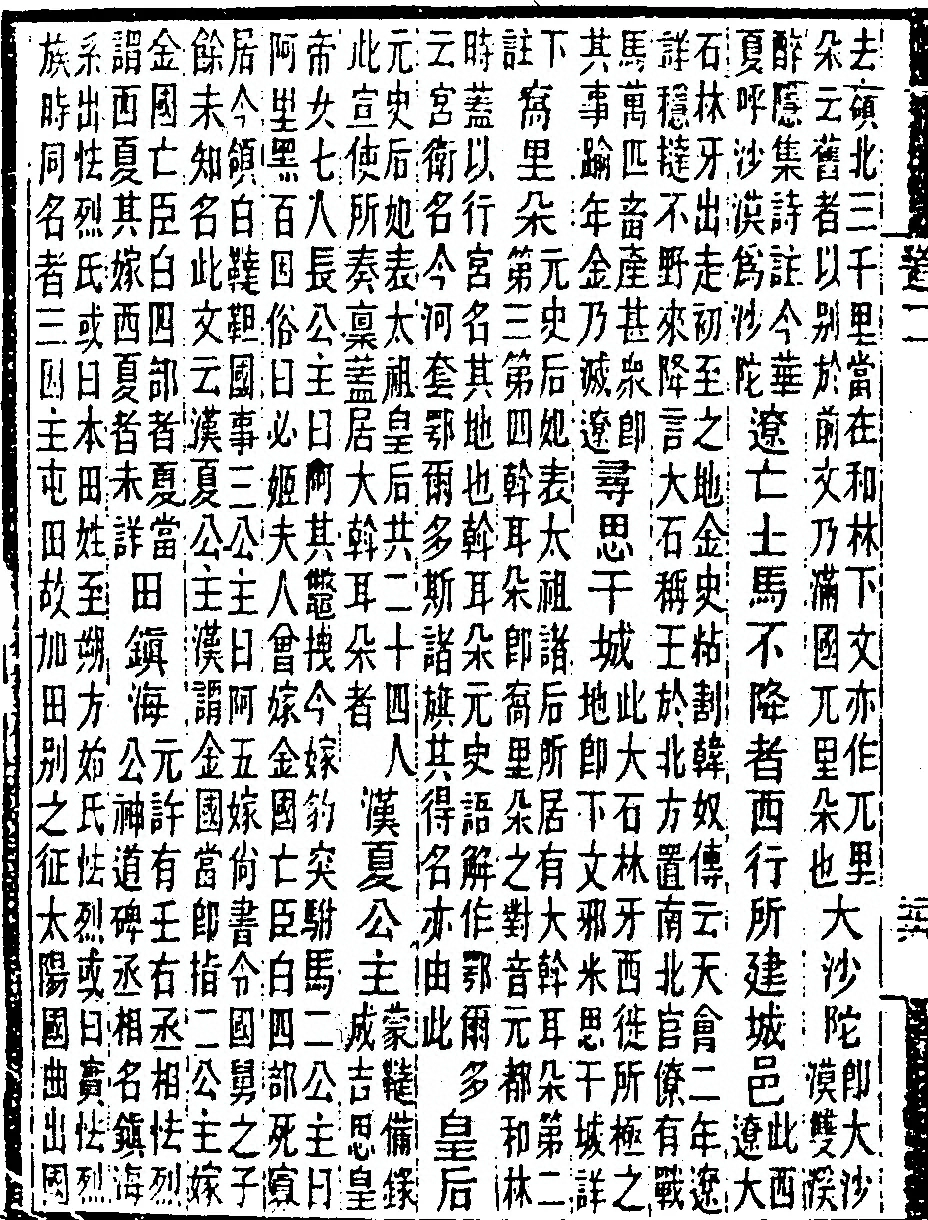 去磧北三千里當在和林下文亦作兀里
朶云舊者以别於前文乃滿國兀里朶也
大沙陀
即大沙
漠雙溪
醉隱集詩註今華
夏呼沙漠爲沙陀
遼亡士馬不降者西行所建城邑
此西
遼大
石林牙出走初至之地金史粘割韓奴傳云天會二年遼
詳穩撻不野來降言大石稱王於北方置南北官僚有戰
馬萬匹畜產甚衆卽
其事踰年金乃滅遼
尋思干城
此大石林牙西徙所極之
地卽下文邪米思干城詳
下
註
窩里朶
元史后妃表太祖諸后所居有大斡耳朶第二
第三第四斡耳朶卽窩里朶之對音元都和林
時蓋以行宮名其地也斡耳朶元史語解作鄂爾多
云宮衛名今河套鄂爾多斯諸旗其得名亦由此
皇后
元史后妃表太祖皇后共二十四人
此宣使所奏稟蓋居大斡耳朶者
漢夏公主
蒙韃備錄
成吉思皇
帝女七人長公主曰阿其鼈拽今嫁豹突駙馬二公主曰
阿里黑百因俗曰必姬夫人曾嫁金國亡臣白四部死寡
居今領白韃靼國事三公主曰阿五嫁尙書令國舅之子
餘未知名此文云漢夏公主漢謂金國當卽指二公主嫁
金國亡臣白四部者夏當
謂西夏其嫁西夏者未詳
田鎭海
元許有壬右丞相怯烈
公神道碑丞相名鎭海
系出怯烈氏或曰本田姓至朔方始氏怯烈或曰實怯烈
族時同名者三因主屯田故加田别之征太陽國曲出國